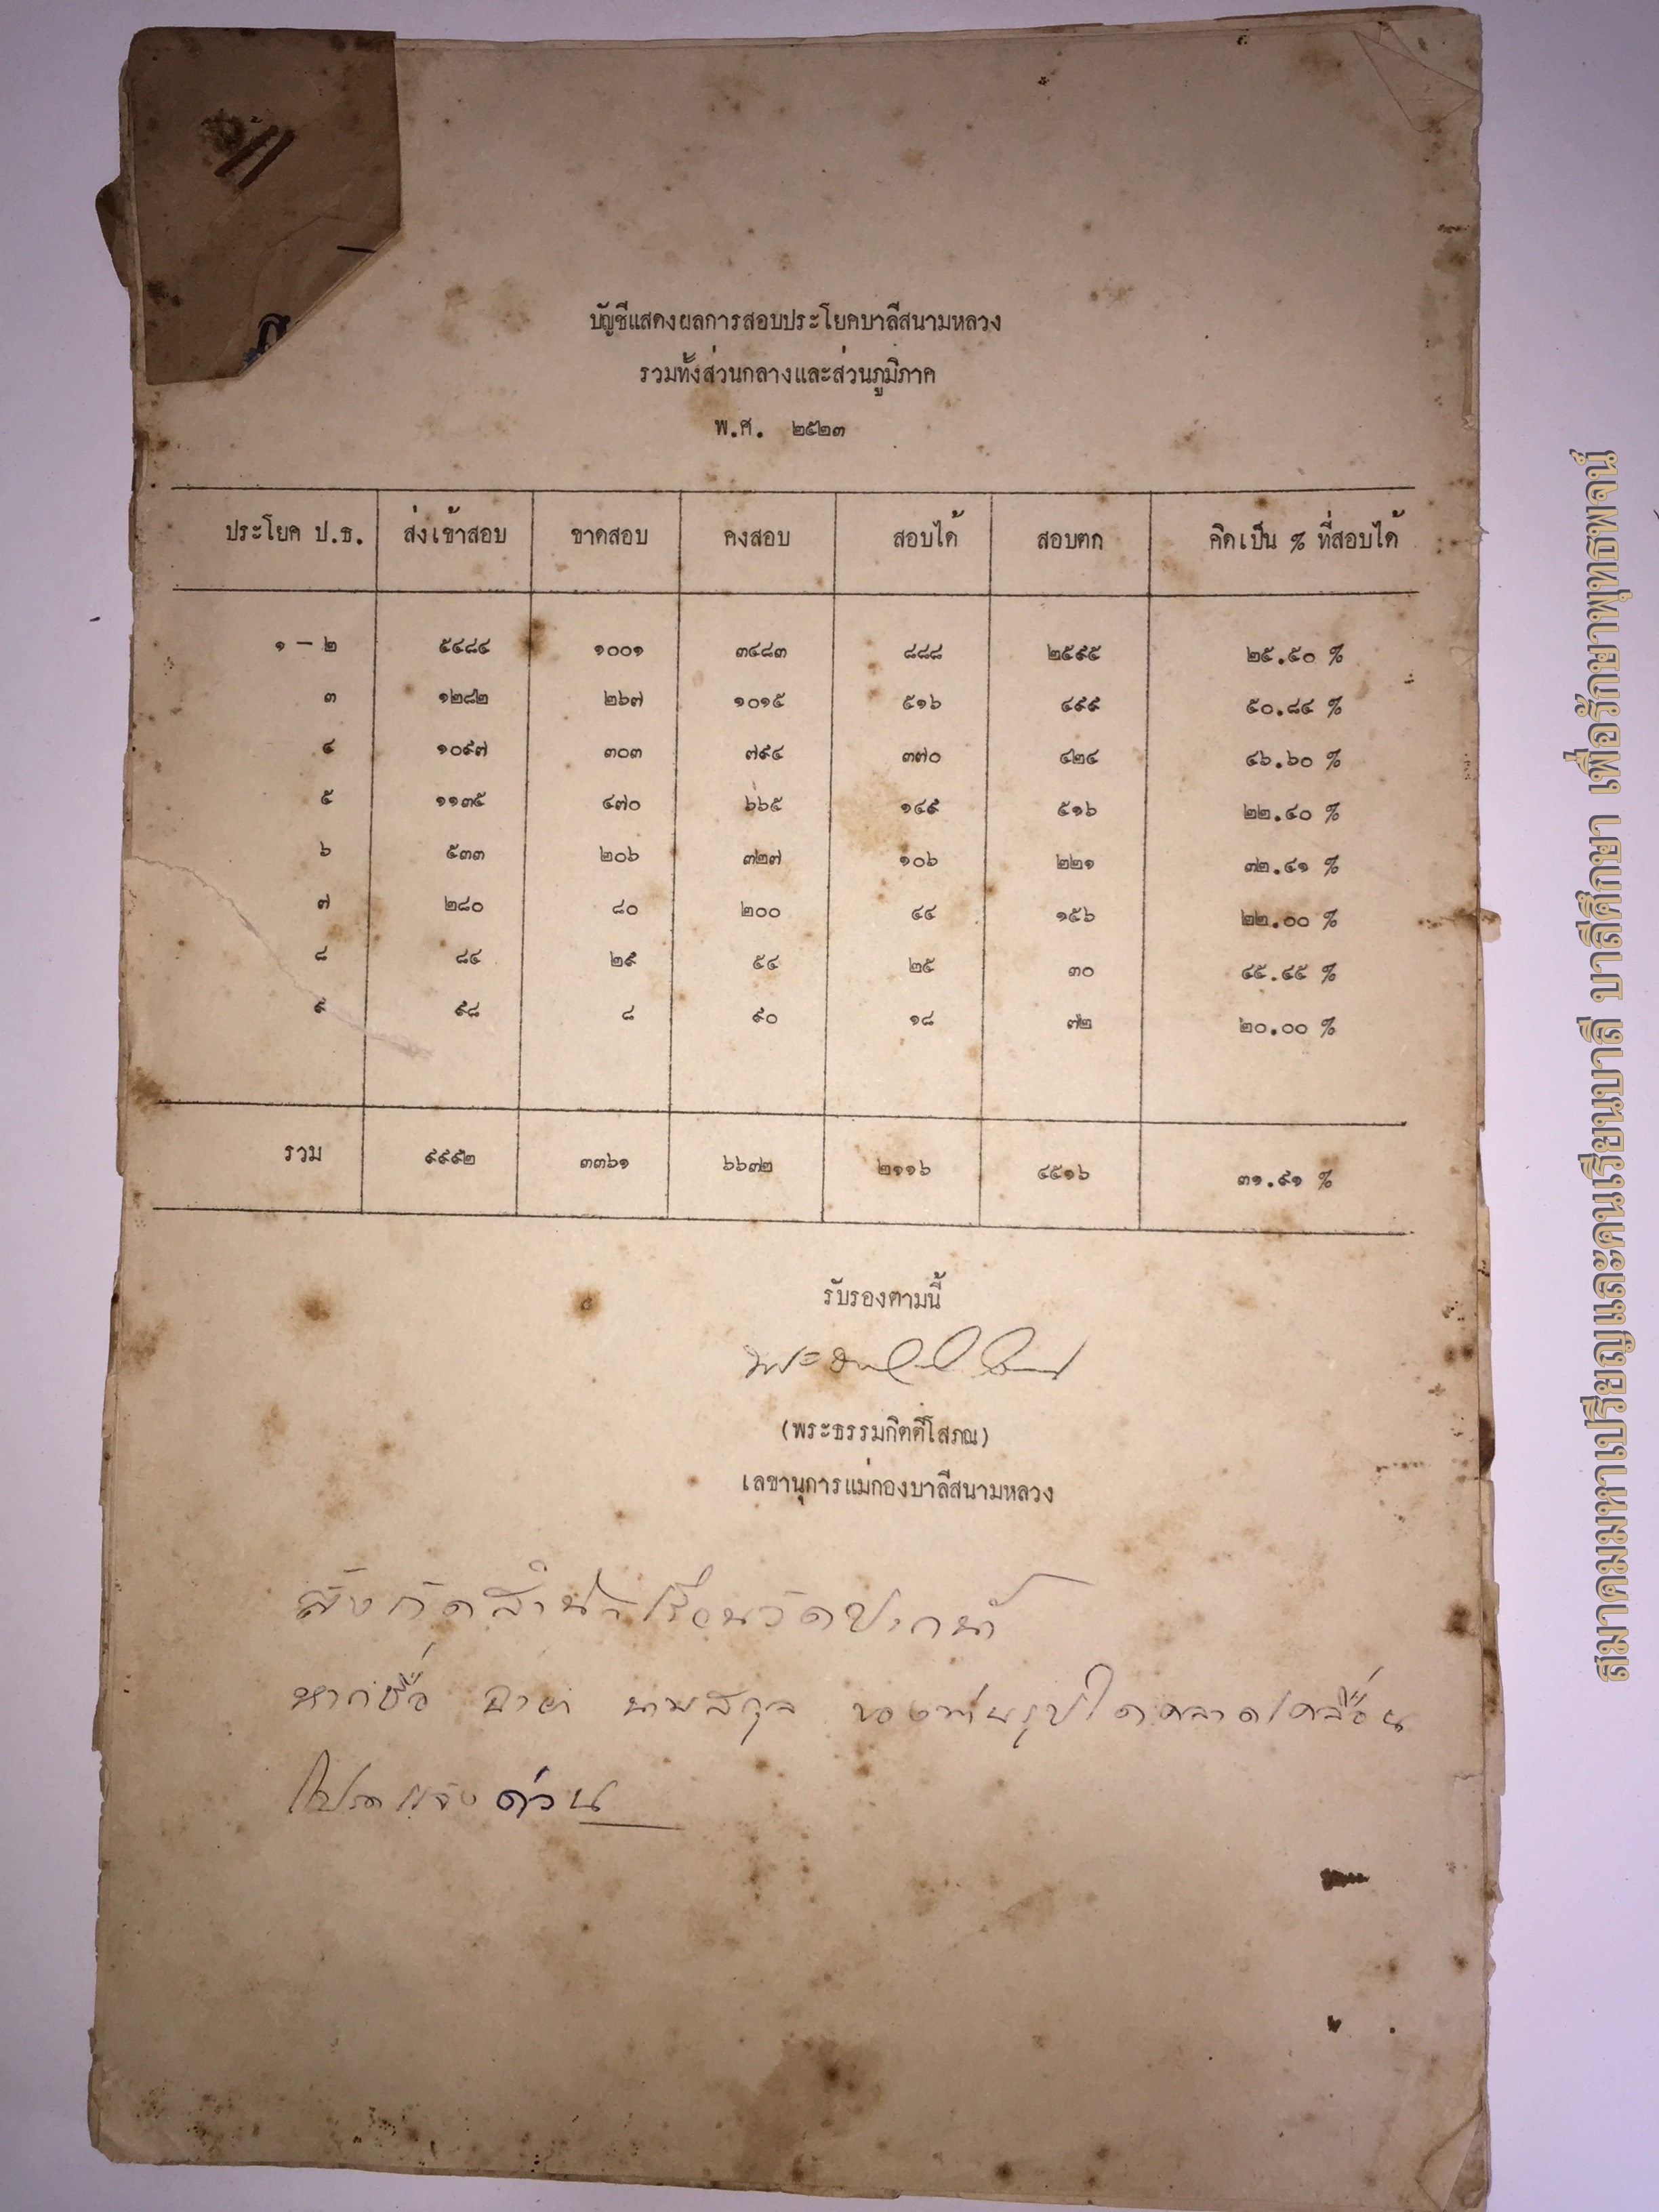 บัญชีแสดงผลการสอบประโยคบาลีสนามหลวง
รวมทั้งส่วนกลางและส่วนภูมิภาค
พ.ศ. ๒๕๒๓
ประโยค ป.ธ. ส่งเข้าสอบ ขาดสอบ คงสอบ สอบได้ สอบตก คิดเป็น % ที่สอบได้
๑ – ๒ ๕๔๘๔ ๑๐๐๑ ๓๔๘๓ ๘๘๘ ๒๕๙๕ ๒๕.๕๐ %
๓ ๑๒๘๒ ๒๖๗ ๑๐๑๕ ๕๑๖ ๔๙๙ ๕๐.๘๔ %
๔ ๑๐๙๗ ๓๐๓ ๗๙๔ ๓๗๐ ๔๒๔ ๔๖.๖๐ %
๕ ๑๑๓๕ ๔๗๐ ๖๖๕ ๑๔๙ ๕๑๖ ๒๒.๔๐ %
๖ ๕๓๓ ๒๐๖ ๓๒๗ ๑๐๖ ๒๒๑ ๓๒.๔๑ %
๗ ๒๘๐ ๘๐ ๒๐๐ ๔๔ ๑๕๖ ๒๒.๐๐ %
๘ ๘๔ ๒๙ ๕๔ ๒๕ ๓๐ ๔๕.๔๕ %
๙ ๙๘ ๘ ๙๐ ๑๘ ๗๒ ๒๐.๐๐ %
รวม ๙๙๙๒ ๓๓๖๑ ๖๖๓๒ ๒๑๑๖ ๔๕๑๖ ๓๑.๙๑ %
รับรองตามนี้
(พระธรรมกิตติโสภณ)
เลขานุการแม่กองบาลีสนามหลวง
สังกัดสำนักเรียนวัดปากน้ำ
หากชื่อ ฉายา นามสกุล ของท่านรูปใดคลาดเคลื่อน
โปรดแจ้งด่วน
สมาคมมหาเปรียญและคนเรียนบาลี บาลีศึกษา เพื่อรักษาพุทธพจน์